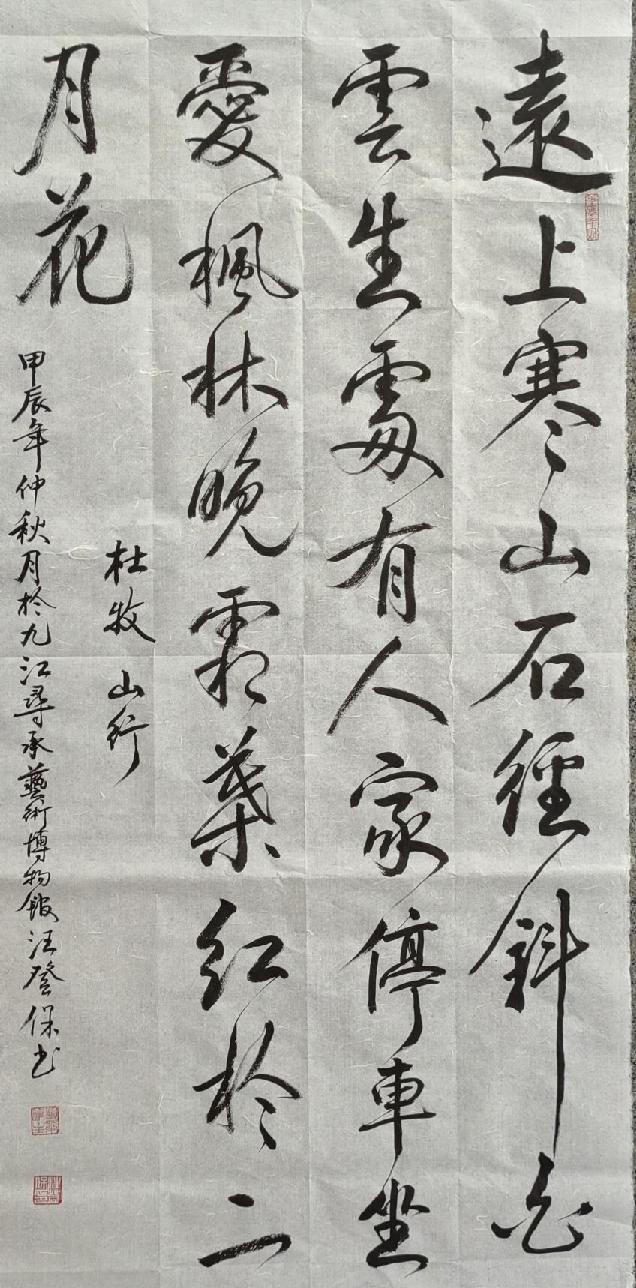 遠上寒山石徑斜白
雲生處有人家停車坐
愛楓林晚霜葉紅於二
月花
杜牧山行
甲辰年仲秋月於九江尋承藝術博物館汪登保书